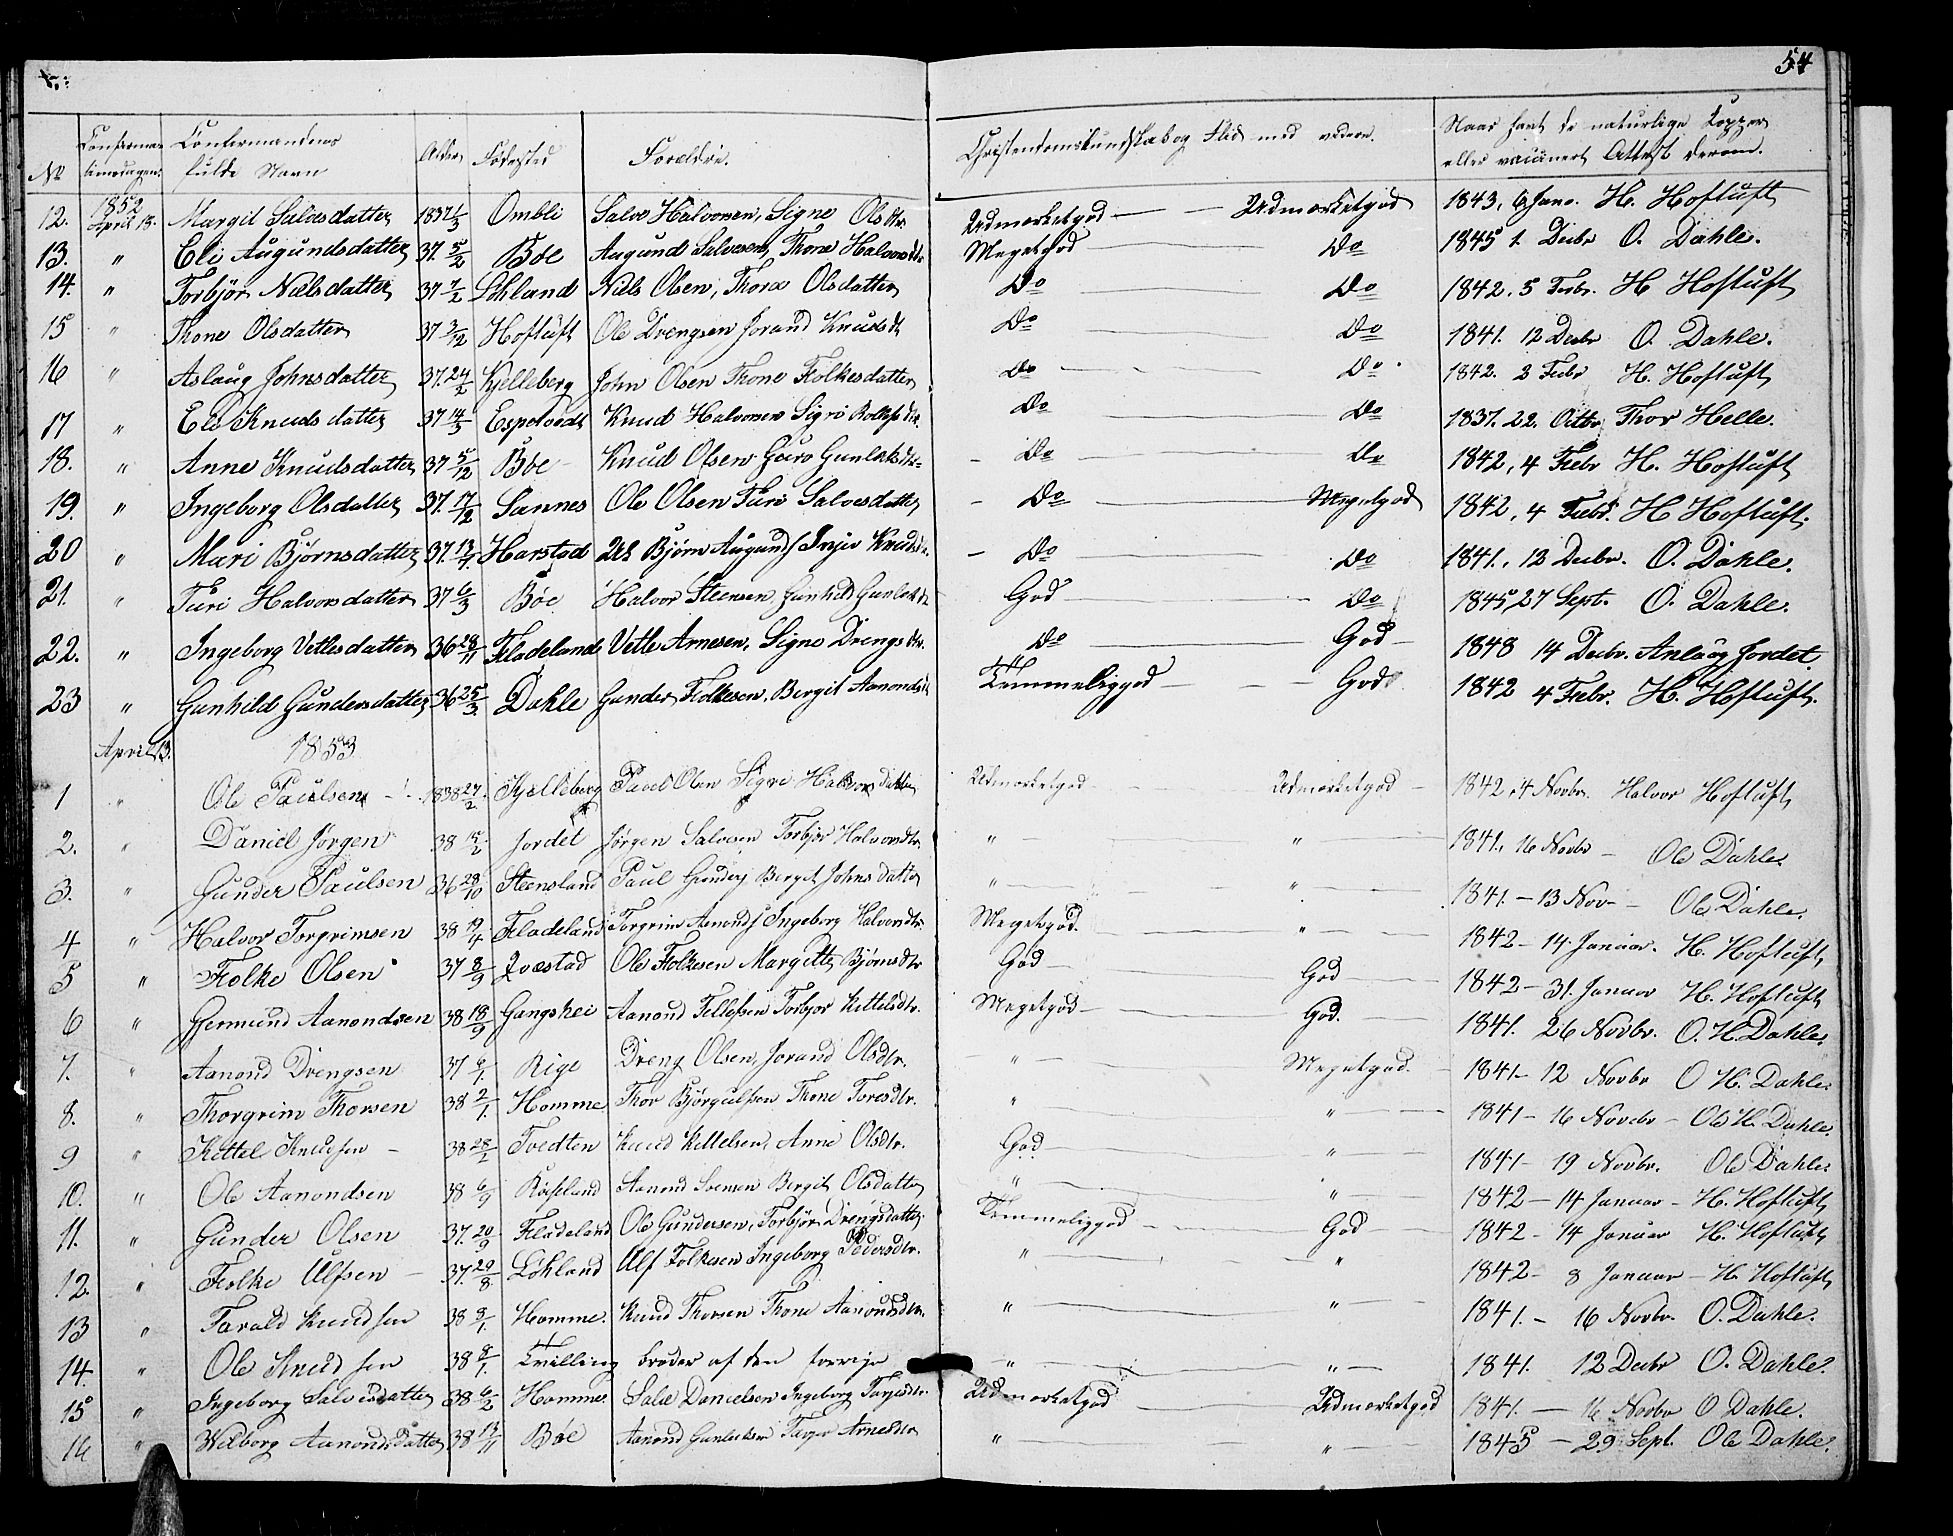 54
No Confirmationsdagen. Confirmandens fulde Navn Alder Fødested Forældre. Christendomskundskab og Flid med videre. Naar havt de naturlige Kopper eller vaccinert, Attest derom.
1852
12. April 18. Margit Salvesdatter 1837 1/3 Ombli Salve Halvorsen, Signe Olsdtr. Udmærketgod — — Udmærketgod 1843, 6 Janr. H. Hoftuft
13. " Eli Augundsdatter 37. 5/2 Bøe Augund Salvesen, Thone Halvorsdtr. Megetgod Do 1845 1. Decbr O. Dahle.
14. " Torbjør Nielsdatter 37 7/2 Løhland Niels Olsen, Thora Olsdatter Do Do 1842. 5 Febr. H Hoftuft
15 " Thone Olsdatter 37 3/12 Hoftuft Ole Drengsen Jorand Knudsdt Do Do 1841. 12 Decbr O. Dahle.
16 " Aslaug Johnsdatter 37. 24/2 Kjelleberg John Olsen Thone Folkesdatter Do Do 1842. 2 Febr H. Hoftuft
17 " Eli Knudsdatter 37 14/3 Espetvedt Knud Halvorsen Sigri Rolfsdtr. Do Do 1837. 22. Octbr Thor Helle.
18. " Anne Knudsdatter 37 5/12 Bøe Knud Olsen Guro Gunleksdtr - Do Do 1842, 4 Febr H. Hoftuft
19. " Ingeborg Olsdatter 37. 17/12 Sannes Ole Olsen Turi Salvesdatter - Do Megetgod 1842, 4 Febr. H Hoftuft.
20 " Mari Bjørnsdatter 37. 13/7 Harstad Bjørn Augunds Knudsdtr. - Do Do 1841. 12 Decbr. O. Dahle.
21. " Turi Halvorsdatter 37 6/3 Bøe Halvor Steensen, Gunhild Gunleksdt God Do 1845, 27 Sept. O. Dahle.
22. " Ingeborg Vetlesdatter 36 28/11 Fladeland Vetle Arnesen, Signe Drengsdtr. Do God 1848 14 Decbr. Anlaug Jordet
23 " Gunhild Gundersdatter 36 25/3 Dahle Gunder Folkesen, Bergit Aanondsdt Temmeliggod — — God 1842 4 Febr. H. Hoftuft.
April 13. 1853
1 " Ole Paulsen 1838 27/2 Kjelleberg Pavel Olsen Signe Halvorsdatter Udmærketgod Udmærketgod 1842. 4 Novbr. Halvor Hoftuft
2. " Daniel Jørgen 38 15/2 Jordet Jørgen Salvesen Torbjør Halvorsdtr " " 1841. 16 Novbr — Ole Dahle.
3. " Gunder Paulsen 36 28/10 Steensland Paul Gunders Bergit Johnsdatter " " 1841. — 13 Nov — Ole Dahle.
4 " Halvor Torgrimsen 38 19/4 Fladeland Torgrim Aanonds Ingeborg Halvorsdtr. Megetgod. " 1842 — 14 Januar. H. Hoftuft
5 " Folke Olsen 37 8/9 Qvestad Ole Folkesen Margitte Bjørnsdtr God God 1842 — 31. Januar H. Hoftuft
6 " Germund Aanondsen 38 18/9 Gangshei Aanond Tellefsen Torbjør Kittelsdtr. Megetgod God. 1841. 26 Novbr. O. H. Dahle.
7. " Aanond Drengsen 37 6/1. Rige Dreng Olsen, Jorand Olsdtr. " Megetgod. 1841 — 12 Novbr O H. Dahle.
8. " Thorgrim Thorsen 38 2/1. Homme Thor Bjørgulfsen Thone Toresdtr. " " 1841 — 16 Novebr — Ole H. Dahle.
9 " Kittel Knudsen 38 28/2 Tvedten Knud Kittelsen, Anne Olsdtr. God " 1841 — 19 Novbr. Ole Dahle.
10. " Ole Aanondsen 38 6/9 Røiseland Aanond Svensen Bergit Olsdatter " " 1842 — 14 Januar — H. Hoftuft
11. " Gunder Olsen 37. 20/9 Fladeland Ole Gundersen, Torbjør Drengsdatter Temmeliggod God 1842 — 14 Januar H. Hoftuft
12. " Folke Ulfsen 37. 29/8. Løhland Ulf Folkesen Ingeborg Pedersdtr. " " 1842 — 8 Januar — H. Hoftuft
13 " Tarald Knudsen 38 9/1. Homme. Knud Thorsen Thone Aanondsdtr. " " 1841. — 16 Novbr. O. Dahle.
14. " Ole Knudsen 38 9/1. Tvilling broder af den forrige " " 1841. 12 Decbr O. Dahle.
15 " Ingeborg Salvesdatter 38 6/2 Homme Salve Danielsen Ingeborg Tarjesdtr. Udmærketgod Udmærketgod 1841. — 16 Novbr O Dahle.
16 " Wilborg Aanondsdatter 38 13/11 Bøe Aanond Gunleksen Targer Arnesdtr " " 1845 — 29 Sept. Ole Dahle.